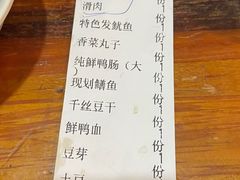 滑肉
特色发鱿鱼 1份
香菜丸子 1份
纯鲜鸭肠（大 1份
）
现划鳝鱼 1份
千丝豆干 1份
鲜鸭血 1份
豆芽 1份